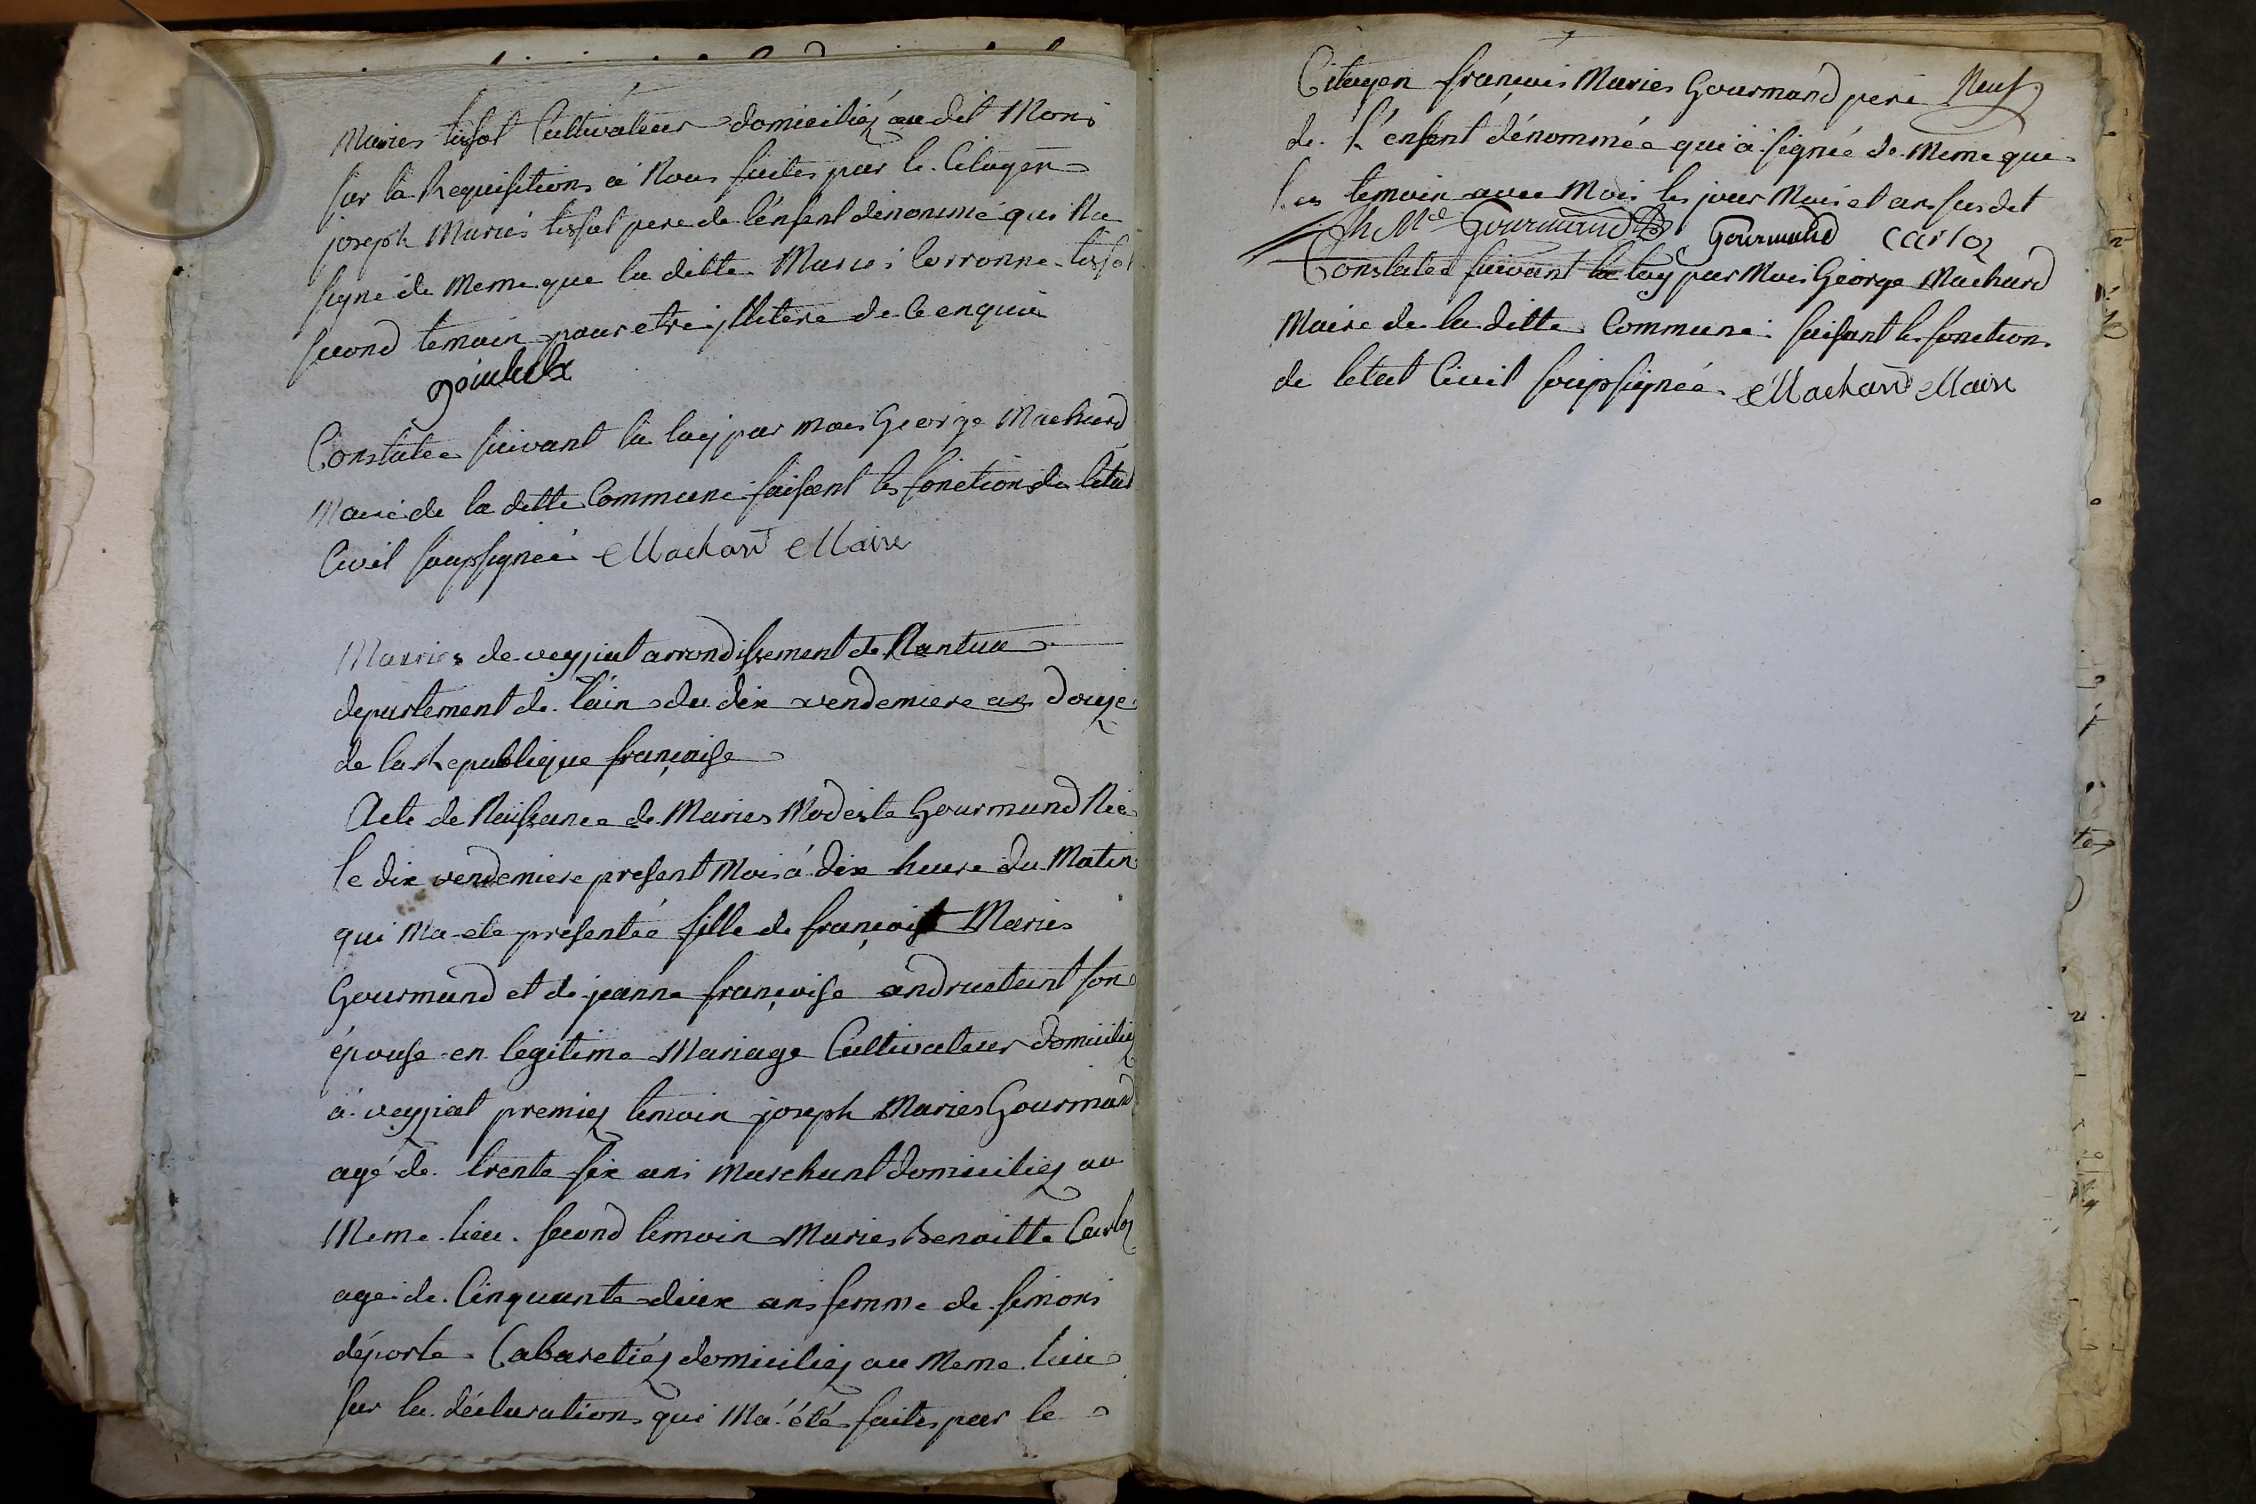 Maries tissot Cultivateur domiciliéz au dit Mons
sur la Requisitions à Nous faites par le Citoyen
joseph Maries tissot pere de l'enfent dénommé qui Na
signé de Meme que la ditte Maries Corronne tissot
second temoin pour etre illitere de ce enquis
Constatée suivant la loy par mois George Machard
Maire de la ditte Commune faisant les fonctions de letat
Civil soupsignée Machard Maire
Mairies de veyziat arrondissement de Nantua
departement de l'ain du dix vendemiere an douze
de la Republique française
Acte de Naissance de Maries Modeste Gourmand Née
le dix vendemiere present Mois à dix heure du Matin
qui Ma ete presentée fille de François Maries
Gourmand et de jeanne françoise andruetant son
épouse en legitime Mariage Cultivateur domiciliéz
à veyziat premiez temoin joseph Maries Gourmand
agé de trente six ans Marchant domiciliéz au
Meme lieu second temoin Maries Benoitte Carloz
age de Cinquante deux ans femme de simons
déporte Cabaretiéz domiciliéz au Meme lieu
sur la déclarations qui Ma été faites par le
Citoyen françois Maries Gourmand pere Neuf
de l'enfent dénommée qui à signée de Meme que
les temoin avec Mois les jour Mois et an susdit
Gourmand Gourmand Carloz
Constatée suivant la loy par Mois George Machard
Maire de la ditte Commune faisant les fonctions
de letat Civil soupsignée Machard Maire